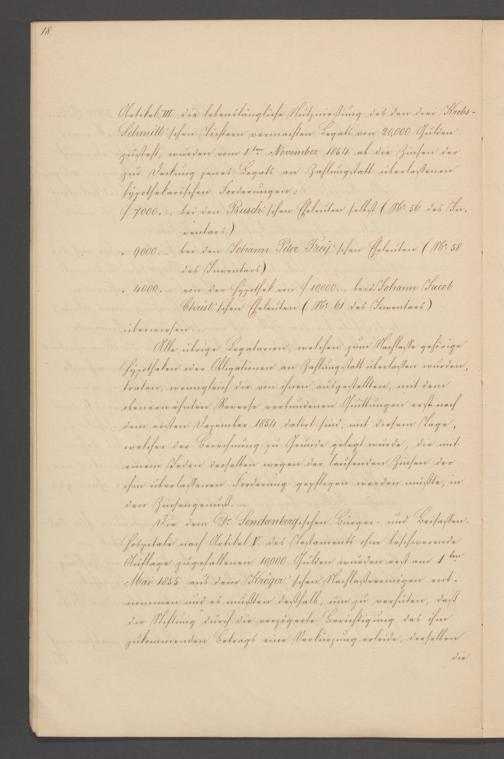 18.
Artikel III. die lebenslängliche Nutznießung des den drei Krebs-
Schmitt'schen Töchtern vermachten Legats von 20,000 Gulden
zusteht, wurden vom 1ten November 1854 ab die Zinsen der
zur Deckung jenes Legats an Zahlungsstatt überlassenen
hypothekarischen Forderungen:
f 7000. – bei den Busch'schen Eheleuten selbst (No. 56 des In-
ventars)
" 9000. – bei den Johann Peter Frey'schen Eheleuten (No. 58
des Inventars)
" 4000. – von der Hypothek von f 10000. – bei Johann Jacob
Christ'schen Eheleuten (No. 61 des Inventars)
überwiesen. –
Alle übrige Legatarien, welchen zum Nachlasse gehörige
Hypotheken oder Obligationen an Zahlungsstatt überlassen wurden,
traten, wenngleich die von ihnen ausgestellten, mit dem
obenerwähnten Reverse verbundenen Quittungen erst nach
dem ersten Dezember 1854 datirt sind, mit diesem Tage,
welcher der Berechnung zu Grunde gelegt wurde, die mit
einem Jeden derselben wegen der laufenden Zinsen der
ihm überlassenen Forderung gepflogen werden mußte, in
den Zinsengenuß. –
Die dem Dr. Senckenbergischen Bürger- und Beisassen-
Hospitale nach Artikel V. des Testaments ohne beschwerende
Auflage zugefallenen 10,000 Gulden wurden erst am 1ten
Mai 1855 aus dem Krüger'schen Nachlaßvermögen ent-
nommen und es mußten deßhalb, um zu verhüten, daß
die Stiftung durch die verzögerte Berichtigung des ihr
zukommenden Betrags eine Verkürzung erleide, derselben
die